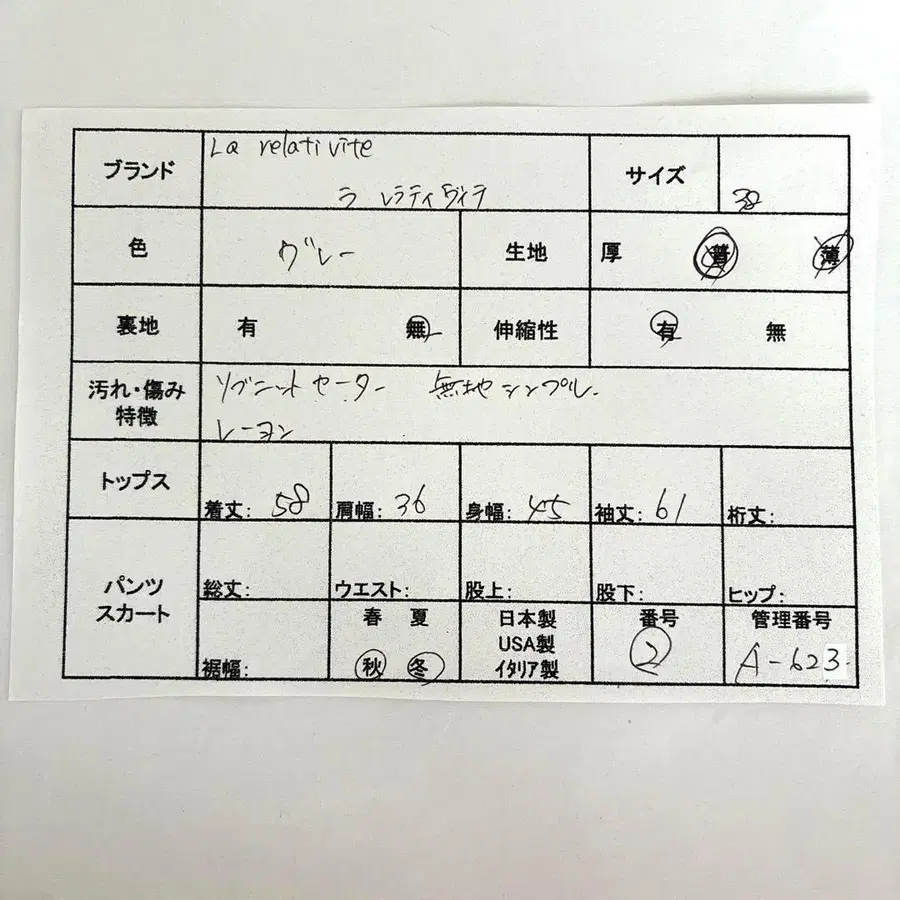 ブランド La relativite サイズ 38
ラ レラティヴィテ
色 グレー 生地 厚 普 薄
裏地 有 無 伸縮性 有 無
汚れ・傷み リブニットセーター 無地シンプル.
特徴 レーヨン
トップス 着丈: 58 肩幅: 36 身幅: 45 袖丈: 61 裄丈:
パンツ スカート 総丈: ウエスト: 股上: 股下: ヒップ:
裾幅: 春 夏 日本製 番号 管理番号
USA製 ② A-623
秋 冬 イタリア製